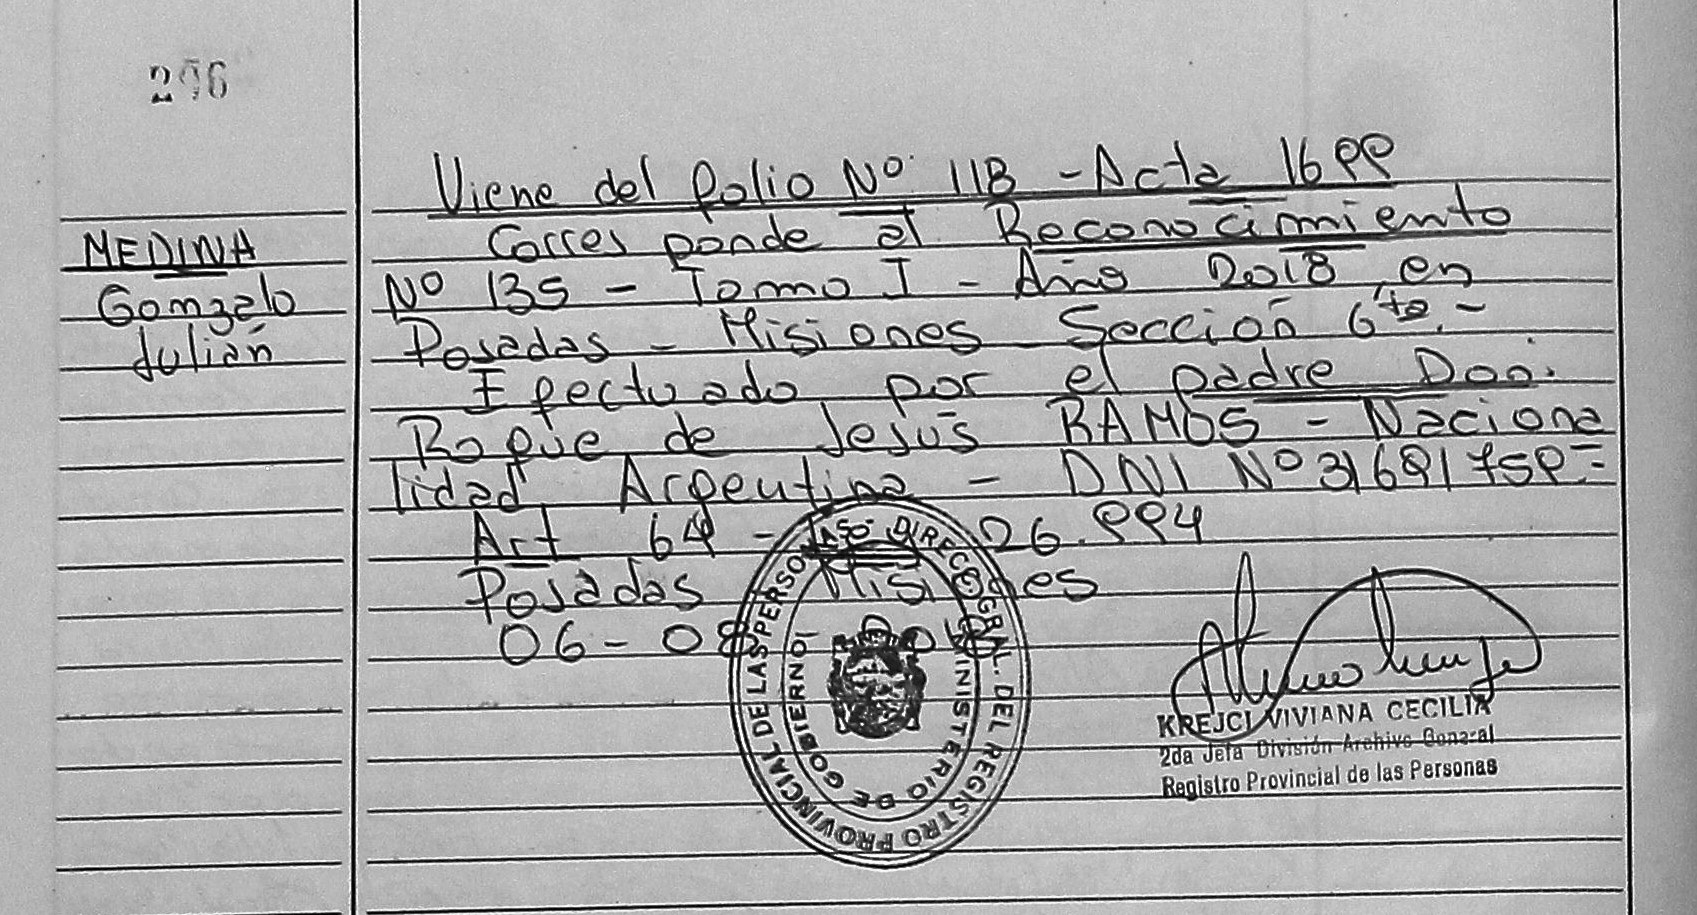 MEDINA
Gonzalo
Julián
Viene del folio Nº 118 - Acta 1699
Corresponde al Reconocimiento
Nº 135 - Tomo I - Año 2018 en
Posadas - Misiones Sección 6ta.-
Efectuado por el padre Don:
Roque de Jesús RAMOS - Naciona
lidad Argentina - DNI Nº 31691759.-
Art 64 - 26.994
Posadas Misiones
06-08
DIRECC. GRAL. DEL REGISTRO PROVINCIAL DE LAS PERSONAS
MINISTERIO DE GOBIERNO
KREJCI VIVIANA CECILIA
2da Jefa División Archivo General
Registro Provincial de las Personas